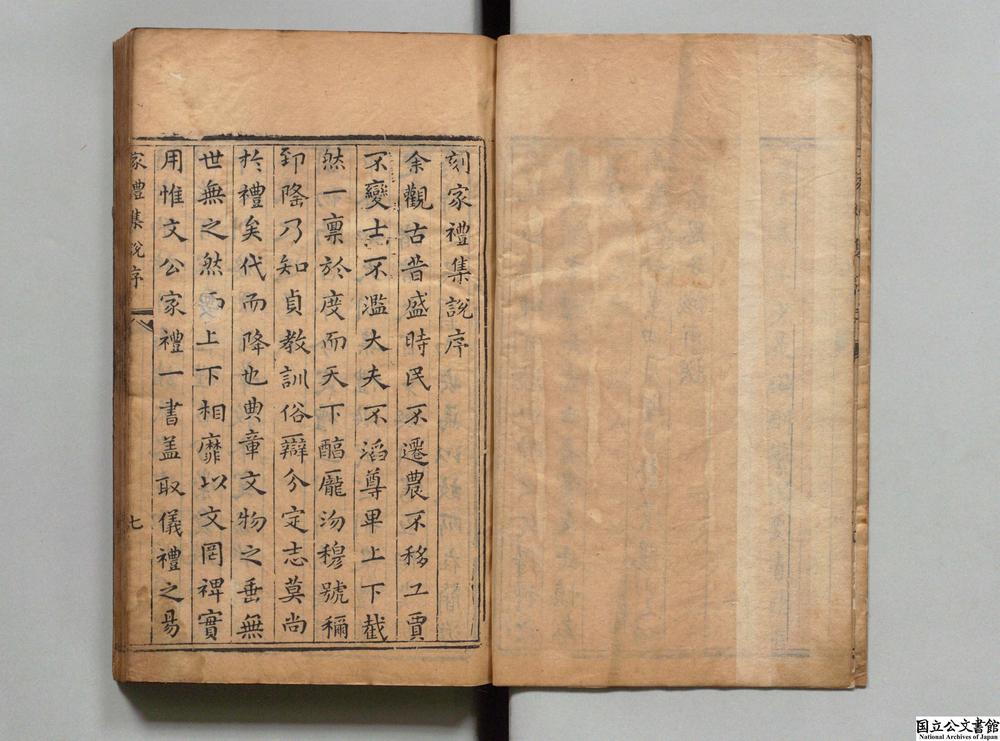 刻家禮集說序
余觀古昔盛時民不遷農不移工賈
不變士不濫大夫不滔尊卑上下截
然一稟於度而天下醕厖沕穆號稱
郅隆乃知貞教訓俗辯分定志莫尚
於禮矣代而降也典章文物之垂無
世無之然而上下相靡以文罔裨實
用惟文公家禮一書盖取儀禮之易
家禮集說序
七
国立公文書館
National Archives of Japan